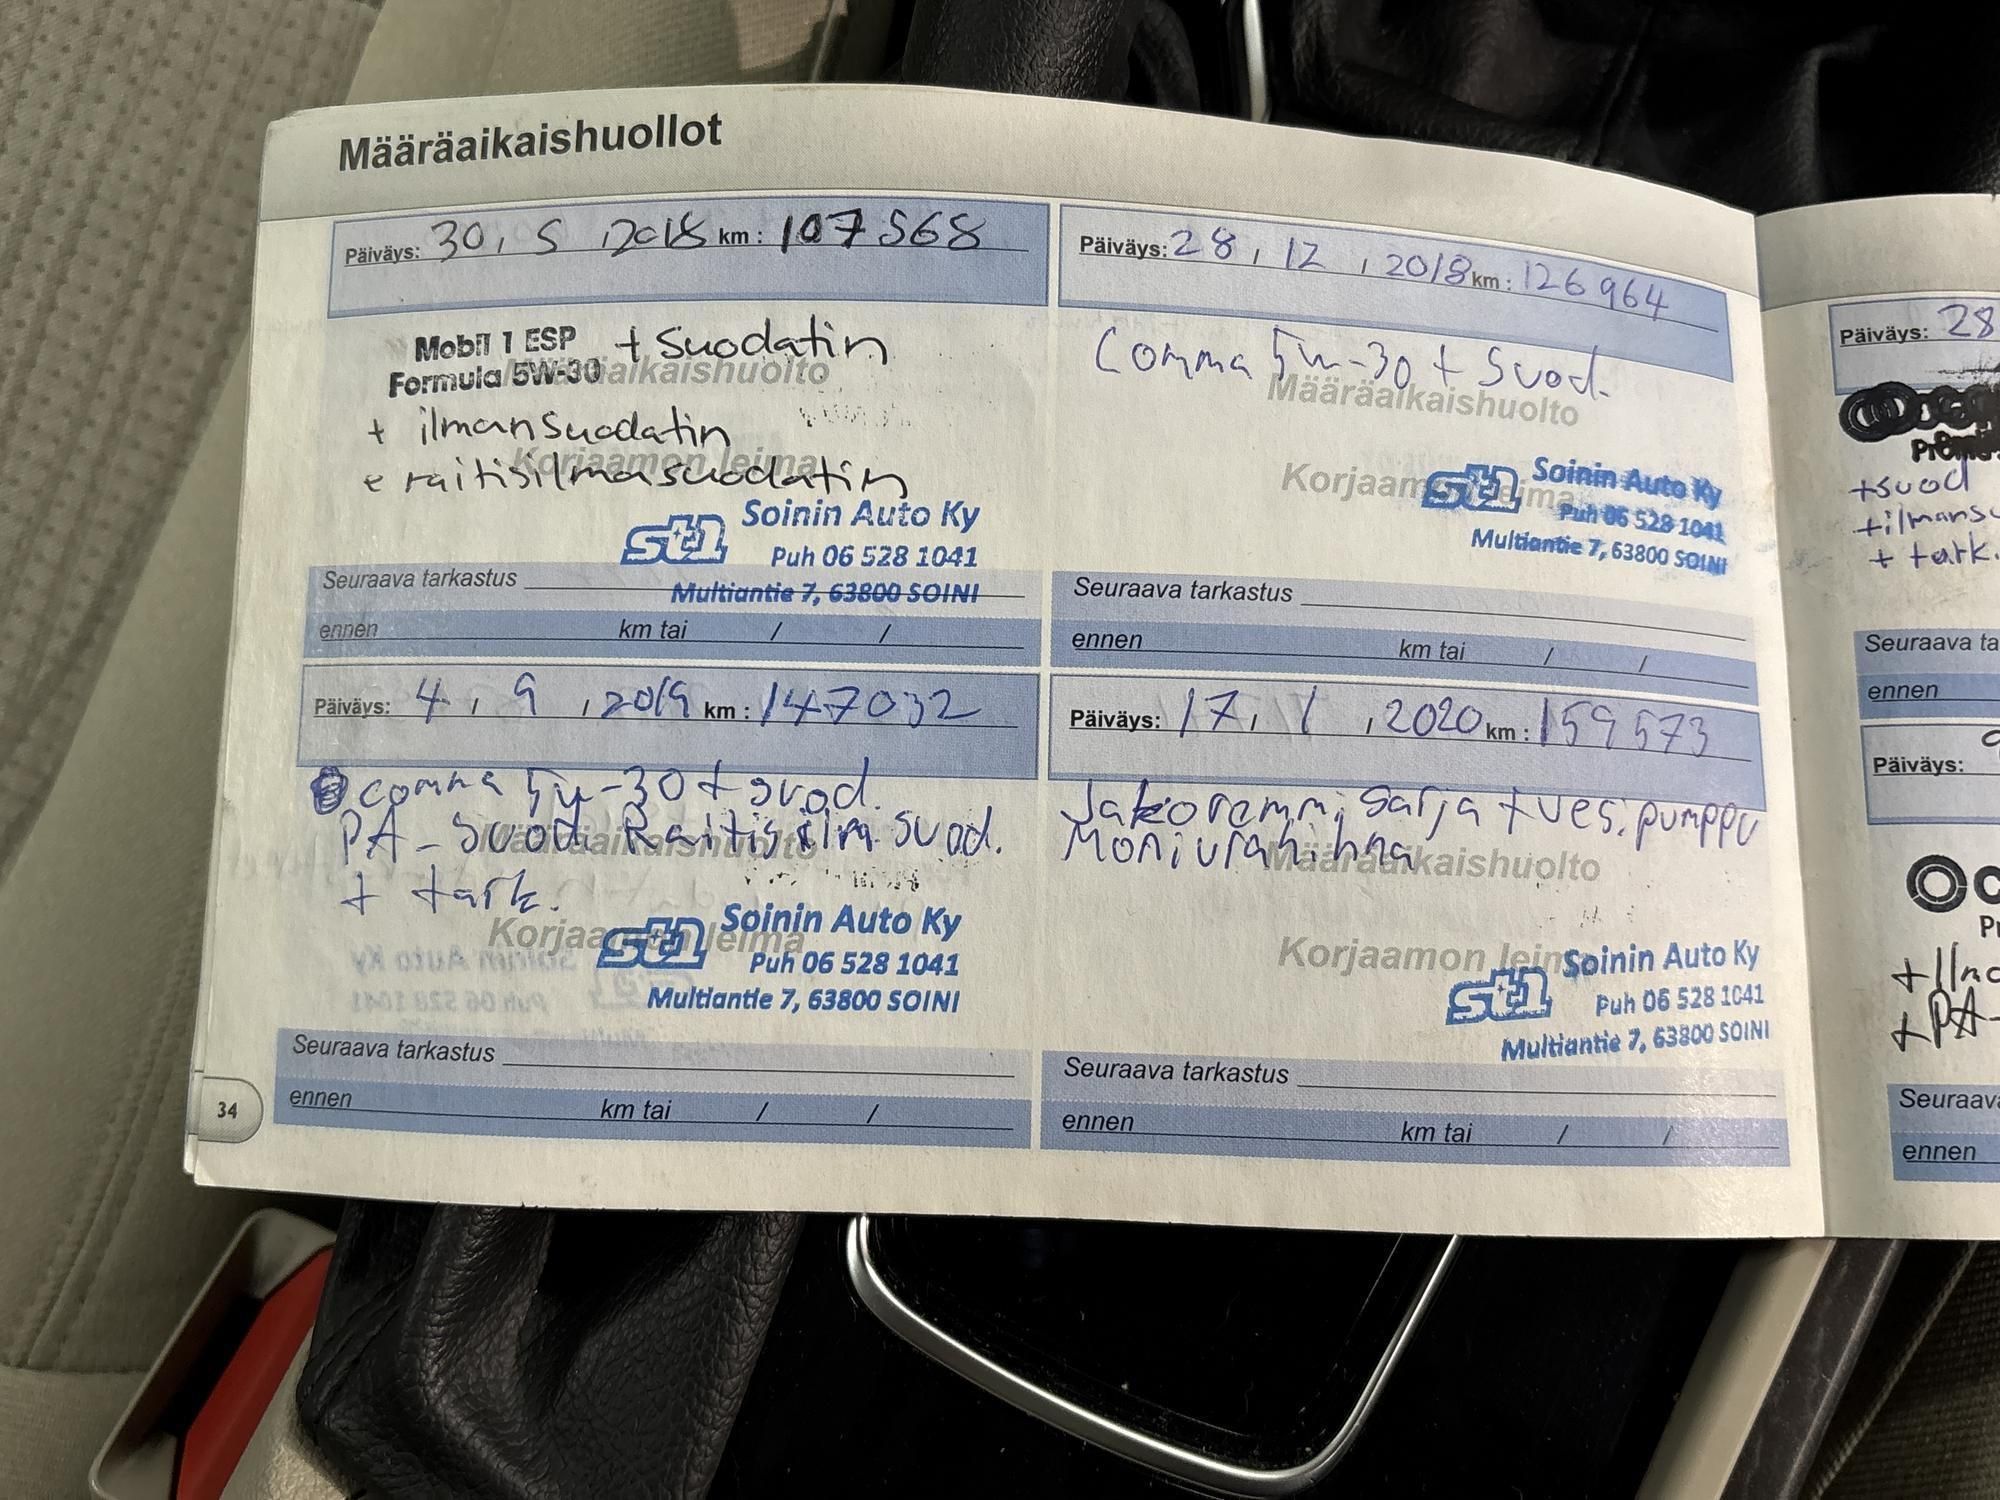 Määräaikaishuollot
Päiväys: 30, 5, 2018 km: 107568
Mobil 1 ESP + suodatin
Formula 5W-30
Määräaikaishuolto
+ ilmansuodatin
Korjaamon leima
+ raitisilmasuodatin
st1 Soinin Auto Ky
Puh 06 528 1041
Multiantie 7, 63800 SOINI
Seuraava tarkastus
ennen km tai / /
Päiväys: 28, 12, 2018 km: 126964
Comma 5w-30 + suod.
Määräaikaishuolto
Korjaamon leima
st1 Soinin Auto Ky
Puh 06 528 1041
Multiantie 7, 63800 SOINI
Seuraava tarkastus
ennen km tai / /
Päiväys: 4, 9, 2019 km: 147032
comma 5w-30 + suod.
PA-suod. Raitisilm.suod.
Määräaikaishuolto
+ tark.
Korjaamon leima
st1 Soinin Auto Ky
Puh 06 528 1041
Multiantie 7, 63800 SOINI
Seuraava tarkastus
ennen km tai / /
Päiväys: 17, 1, 2020 km: 159573
Jakoremmi sarja + vesipumppu
Moniurahihna
Määräaikaishuolto
Korjaamon leima
st1 Soinin Auto Ky
Puh 06 528 1041
Multiantie 7, 63800 SOINI
Seuraava tarkastus
ennen km tai / /
34
Päiväys: 28
+suod
+ilmans
+ tark.
Seuraava ta
ennen
Päiväys:
+ PA-
Seuraava
ennen